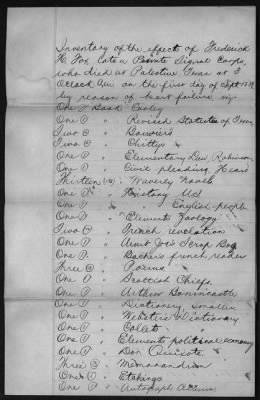 Inventory of the effects of Frederick
H. Fox late a Private Signal Corps,
who died at Palestine Texas at 3
O'clock Am on the first day of Sept
by reason of heart failure, viz
One 1 Book Cooley
One 1 " Revised Statutes of Texas
Two 2 " Bouvier's
Two 2 " Chittys
One 1 " Elementary Law Robinson
One 1 " Civil pleading Heard
Thirteen " Waverly Novels
One 1 " History
One 1 " " English people
One 1 " Elements Zoology
Two 2 " French revolution
One 1 " Aunt Jo's Scrap Bag
One 1 " french reader
Three 3 " Poems
One 1 " Scottish Chiefs
One 1 " Arthur Bonnicastle
One 1 " Dictionary smaller
One 1 " Webster's Dictionary
One 1 "
One 1 " Elements political economy
One 1 " Don Quixote
Three 3 " Memorandum
One 1 " Etchings
One 1 " Autograph Album